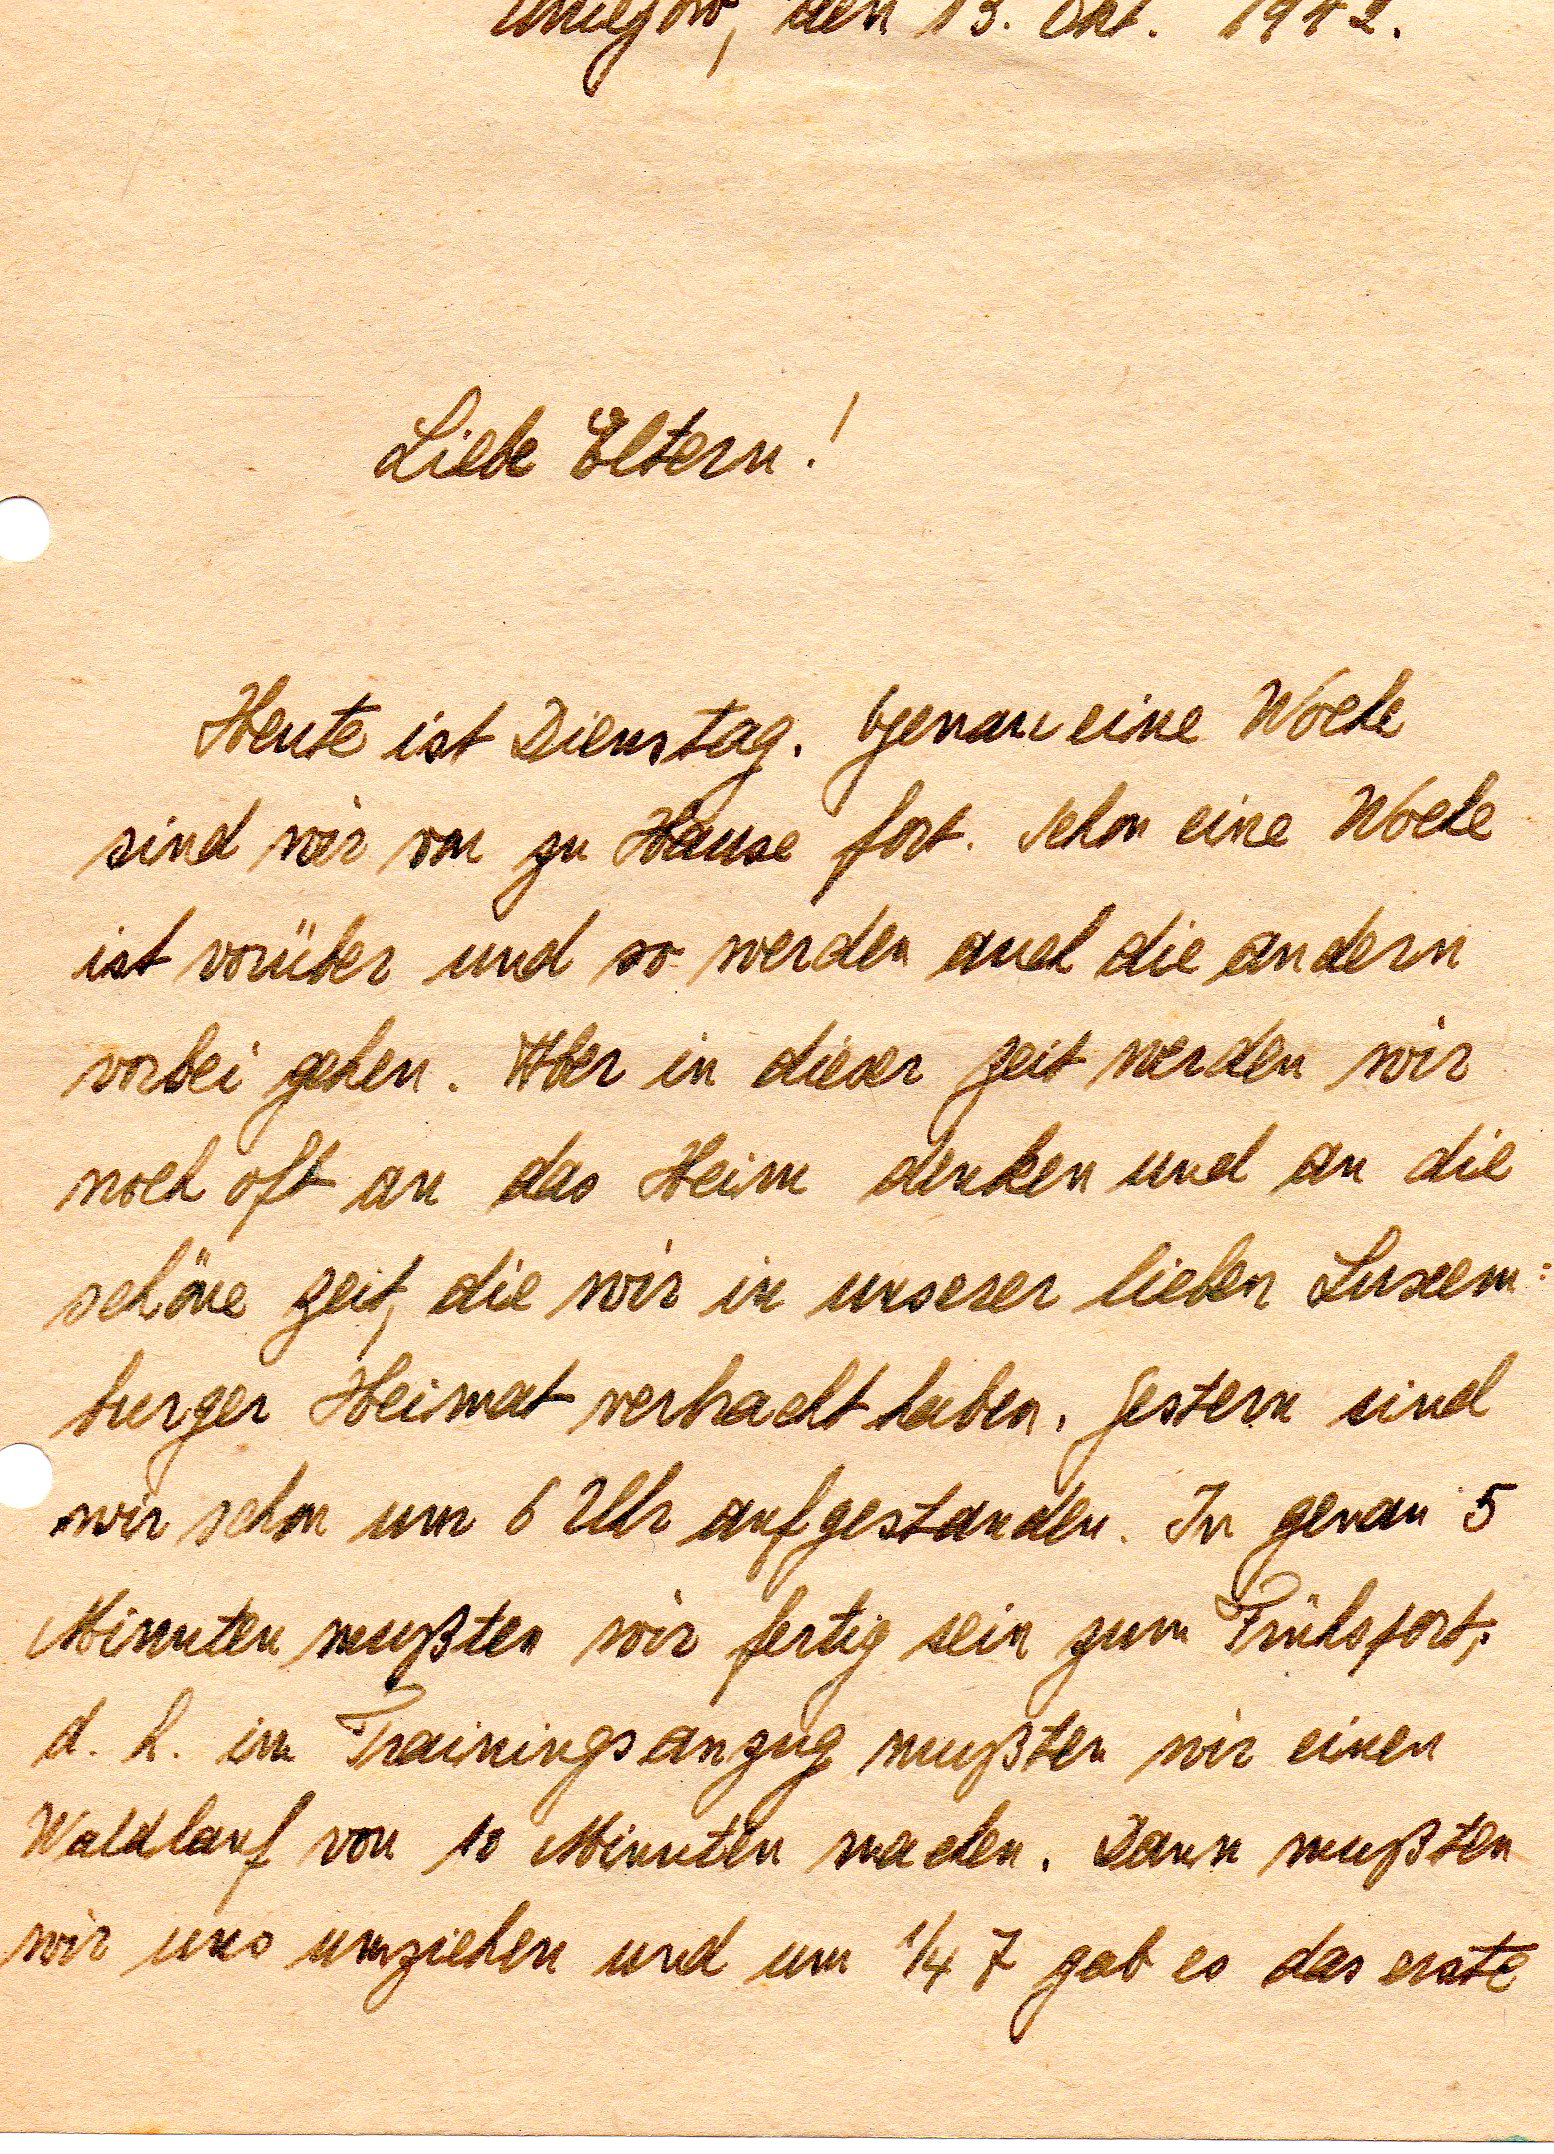 den 13. Okt. 1942.
Liebe Eltern!
Heute ist Dienstag. Genau eine Woche
sind wir von zu Hause fort. Schon eine Woche
ist vorüber und so werden auch die andern
vorbei gehen. Aber in dieser Zeit werden wir
noch oft an das Heim denken und an die
schöne Zeit, die wir in unserer lieben Luxem:
burger Heimat verbracht haben. Gestern sind
wir schon um 6 Uhr aufgestanden. In genau 5
Minuten mußten wir fertig sein zum Frühsport,
d. h. im Trainingsanzug mußten wir einen
Waldlauf von 10 Minuten machen. Dann mußten
wir uns umziehen und um 1/4 7 gab es das erste